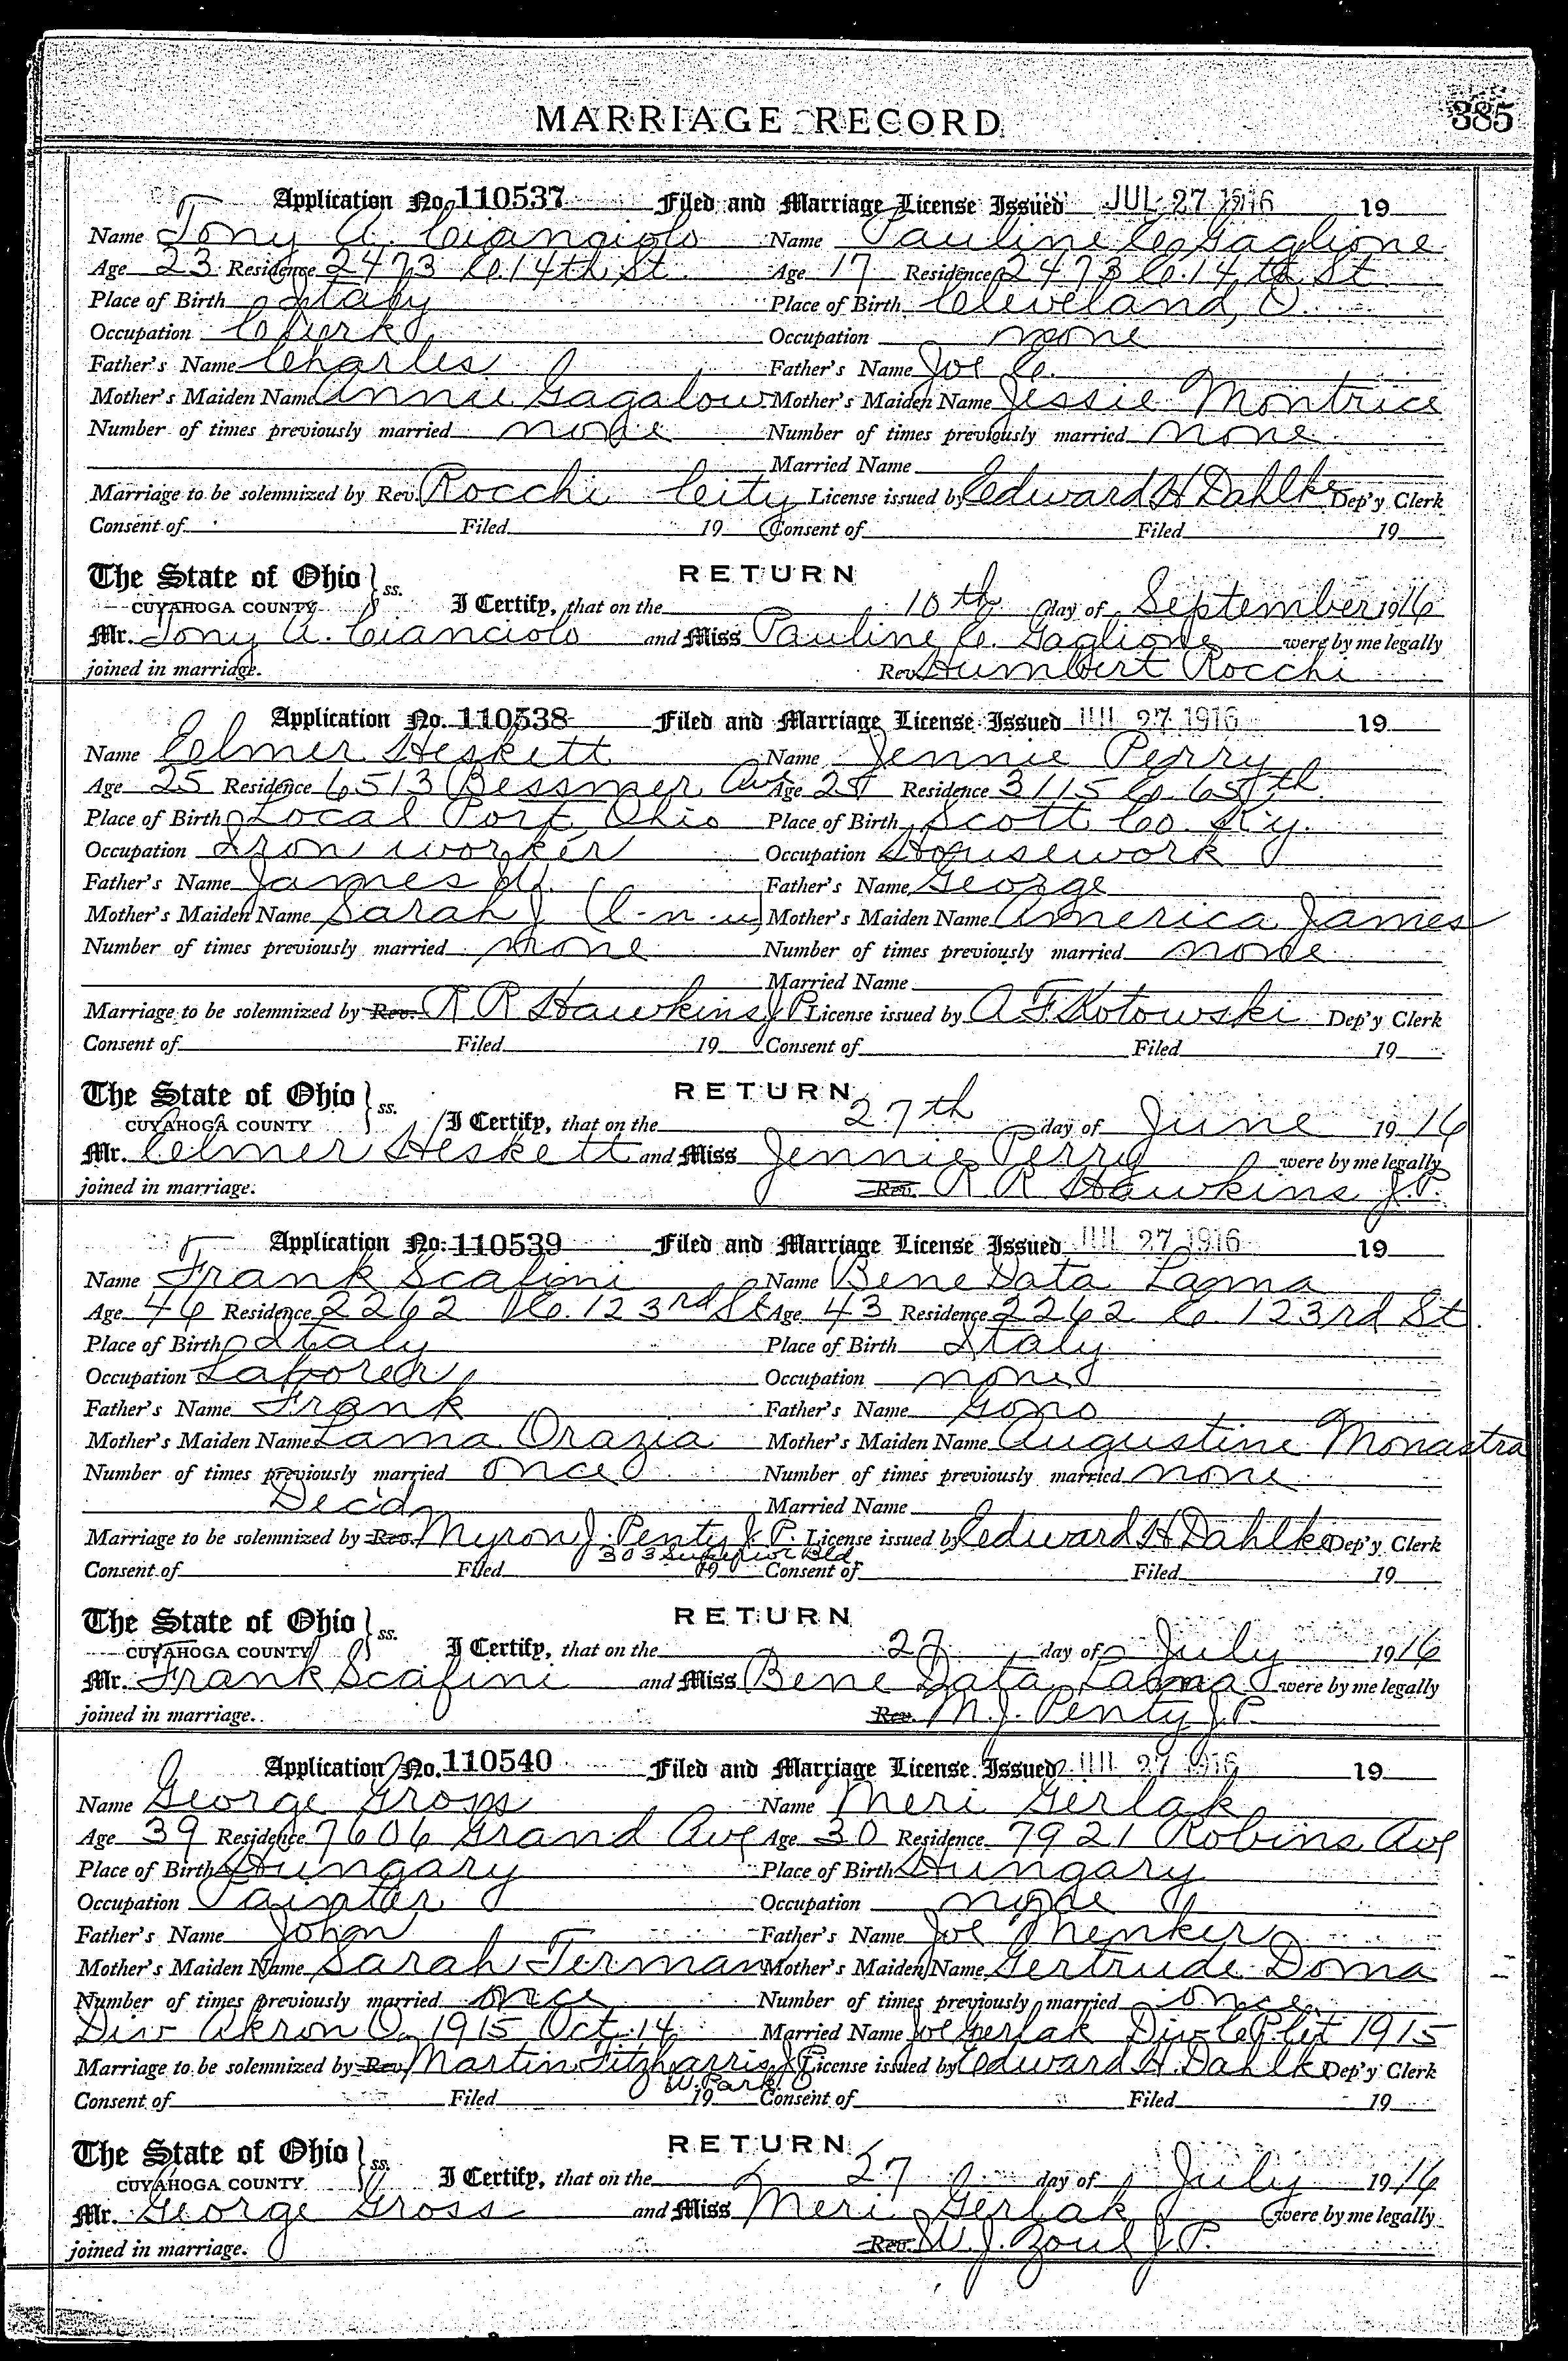 MARRIAGE RECORD 385
Application No. 110537 Filed and Marriage License Issued JUL 27 1916 19
Name Tony A. Cianciolo Name Pauline C. Gaglione
Age 23 Residence 2473 E. 14th St. Age 17 Residence 2473 E. 14th St
Place of Birth Italy Place of Birth Cleveland, O.
Occupation Clerk Occupation none
Father's Name Charles Father's Name Joe C.
Mother's Maiden Name Annie Gagalow Mother's Maiden Name Jessie Montrice
Number of times previously married none Number of times previously married none
Married Name
Marriage to be solemnized by Rev. Rocchi City License issued by Edward H Dahlke Dep'y Clerk
Consent of Filed 19 Consent of Filed 19
The State of Ohio } ss. RETURN
CUYAHOGA COUNTY I Certify, that on the 10th day of September 1916
Mr. Tony A. Cianciolo and Miss Pauline C. Gaglione were by me legally
joined in marriage. Rev. Humbert Rocchi
Application No. 110538 Filed and Marriage License Issued JUL 27 1916 19
Name Elmer Heskett Name Jennie Perry
Age 25 Residence 6513 Bessmer Ave Age 25 Residence 3115 E. 65th
Place of Birth Local Port, Ohio Place of Birth Scott Co. Ky.
Occupation Iron worker Occupation Housework
Father's Name James W. Father's Name George
Mother's Maiden Name Sarah J. Mother's Maiden Name America James
Number of times previously married none Number of times previously married none
Married Name
Marriage to be solemnized by Rev. R R Hawkins J.P. License issued by A. F. Kotowski Dep'y Clerk
Consent of Filed 19 Consent of Filed 19
The State of Ohio } ss. RETURN
CUYAHOGA COUNTY I Certify, that on the 27th day of June 1916
Mr. Elmer Heskett and Miss Jennie Perry were by me legally
joined in marriage. Rev. R R Hawkins J.P.
Application No. 110539 Filed and Marriage License Issued JUL 27 1916 19
Name Frank Scafini Name Bene Data Lama
Age 46 Residence 2262 E. 123rd St Age 43 Residence 2262 E. 123rd St.
Place of Birth Italy Place of Birth Italy
Occupation Laborer Occupation none
Father's Name Frank Father's Name Gono
Mother's Maiden Name Lama Orazia Mother's Maiden Name Augustine Monastra
Number of times previously married once Number of times previously married none
Dec'd Married Name
Marriage to be solemnized by Rev. Myron J. Penty J.P. License issued by Edward H Dahlke Dep'y Clerk
303 Superior Bld
Consent of Filed 19 Consent of Filed 19
The State of Ohio } ss. RETURN
CUYAHOGA COUNTY I Certify, that on the 27 day of July 1916
Mr. Frank Scafini and Miss Bene Data Lama were by me legally
joined in marriage. Rev. M. J. Penty J.P.
Application No. 110540 Filed and Marriage License Issued JUL 27 1916 19
Name George Gross Name Meri Gerlak
Age 39 Residence 7606 Grand Ave Age 30 Residence 7921 Robins Ave
Place of Birth Hungary Place of Birth Hungary
Occupation Painter Occupation none
Father's Name John Father's Name Joe Menker
Mother's Maiden Name Sarah Terman Mother's Maiden Name Gertrude Doma
Number of times previously married once Number of times previously married once
Div Akron O. 1915 Oct. 14 Married Name Joe Gerlak Div 1915
Marriage to be solemnized by Rev. Martin Fitzharris J.P. License issued by Edward H. Dahlke Dep'y Clerk
W. Park O
Consent of Filed 19 Consent of Filed 19
The State of Ohio } ss. RETURN
CUYAHOGA COUNTY I Certify, that on the 27 day of July 1916
Mr. George Gross and Miss Meri Gerlak were by me legally
joined in marriage. Rev. W. J. Zoul J.P.